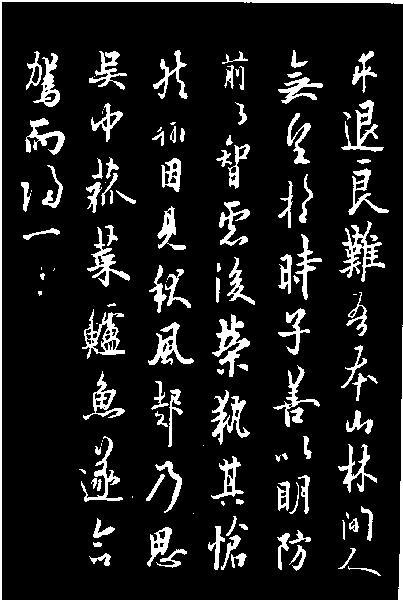 求退良難吾本山林間人
無望於時子善以明防
前以智慮後榮執其愴
然翰因見秋風起乃思
吳中菰菜鱸魚遂命
駕而歸一